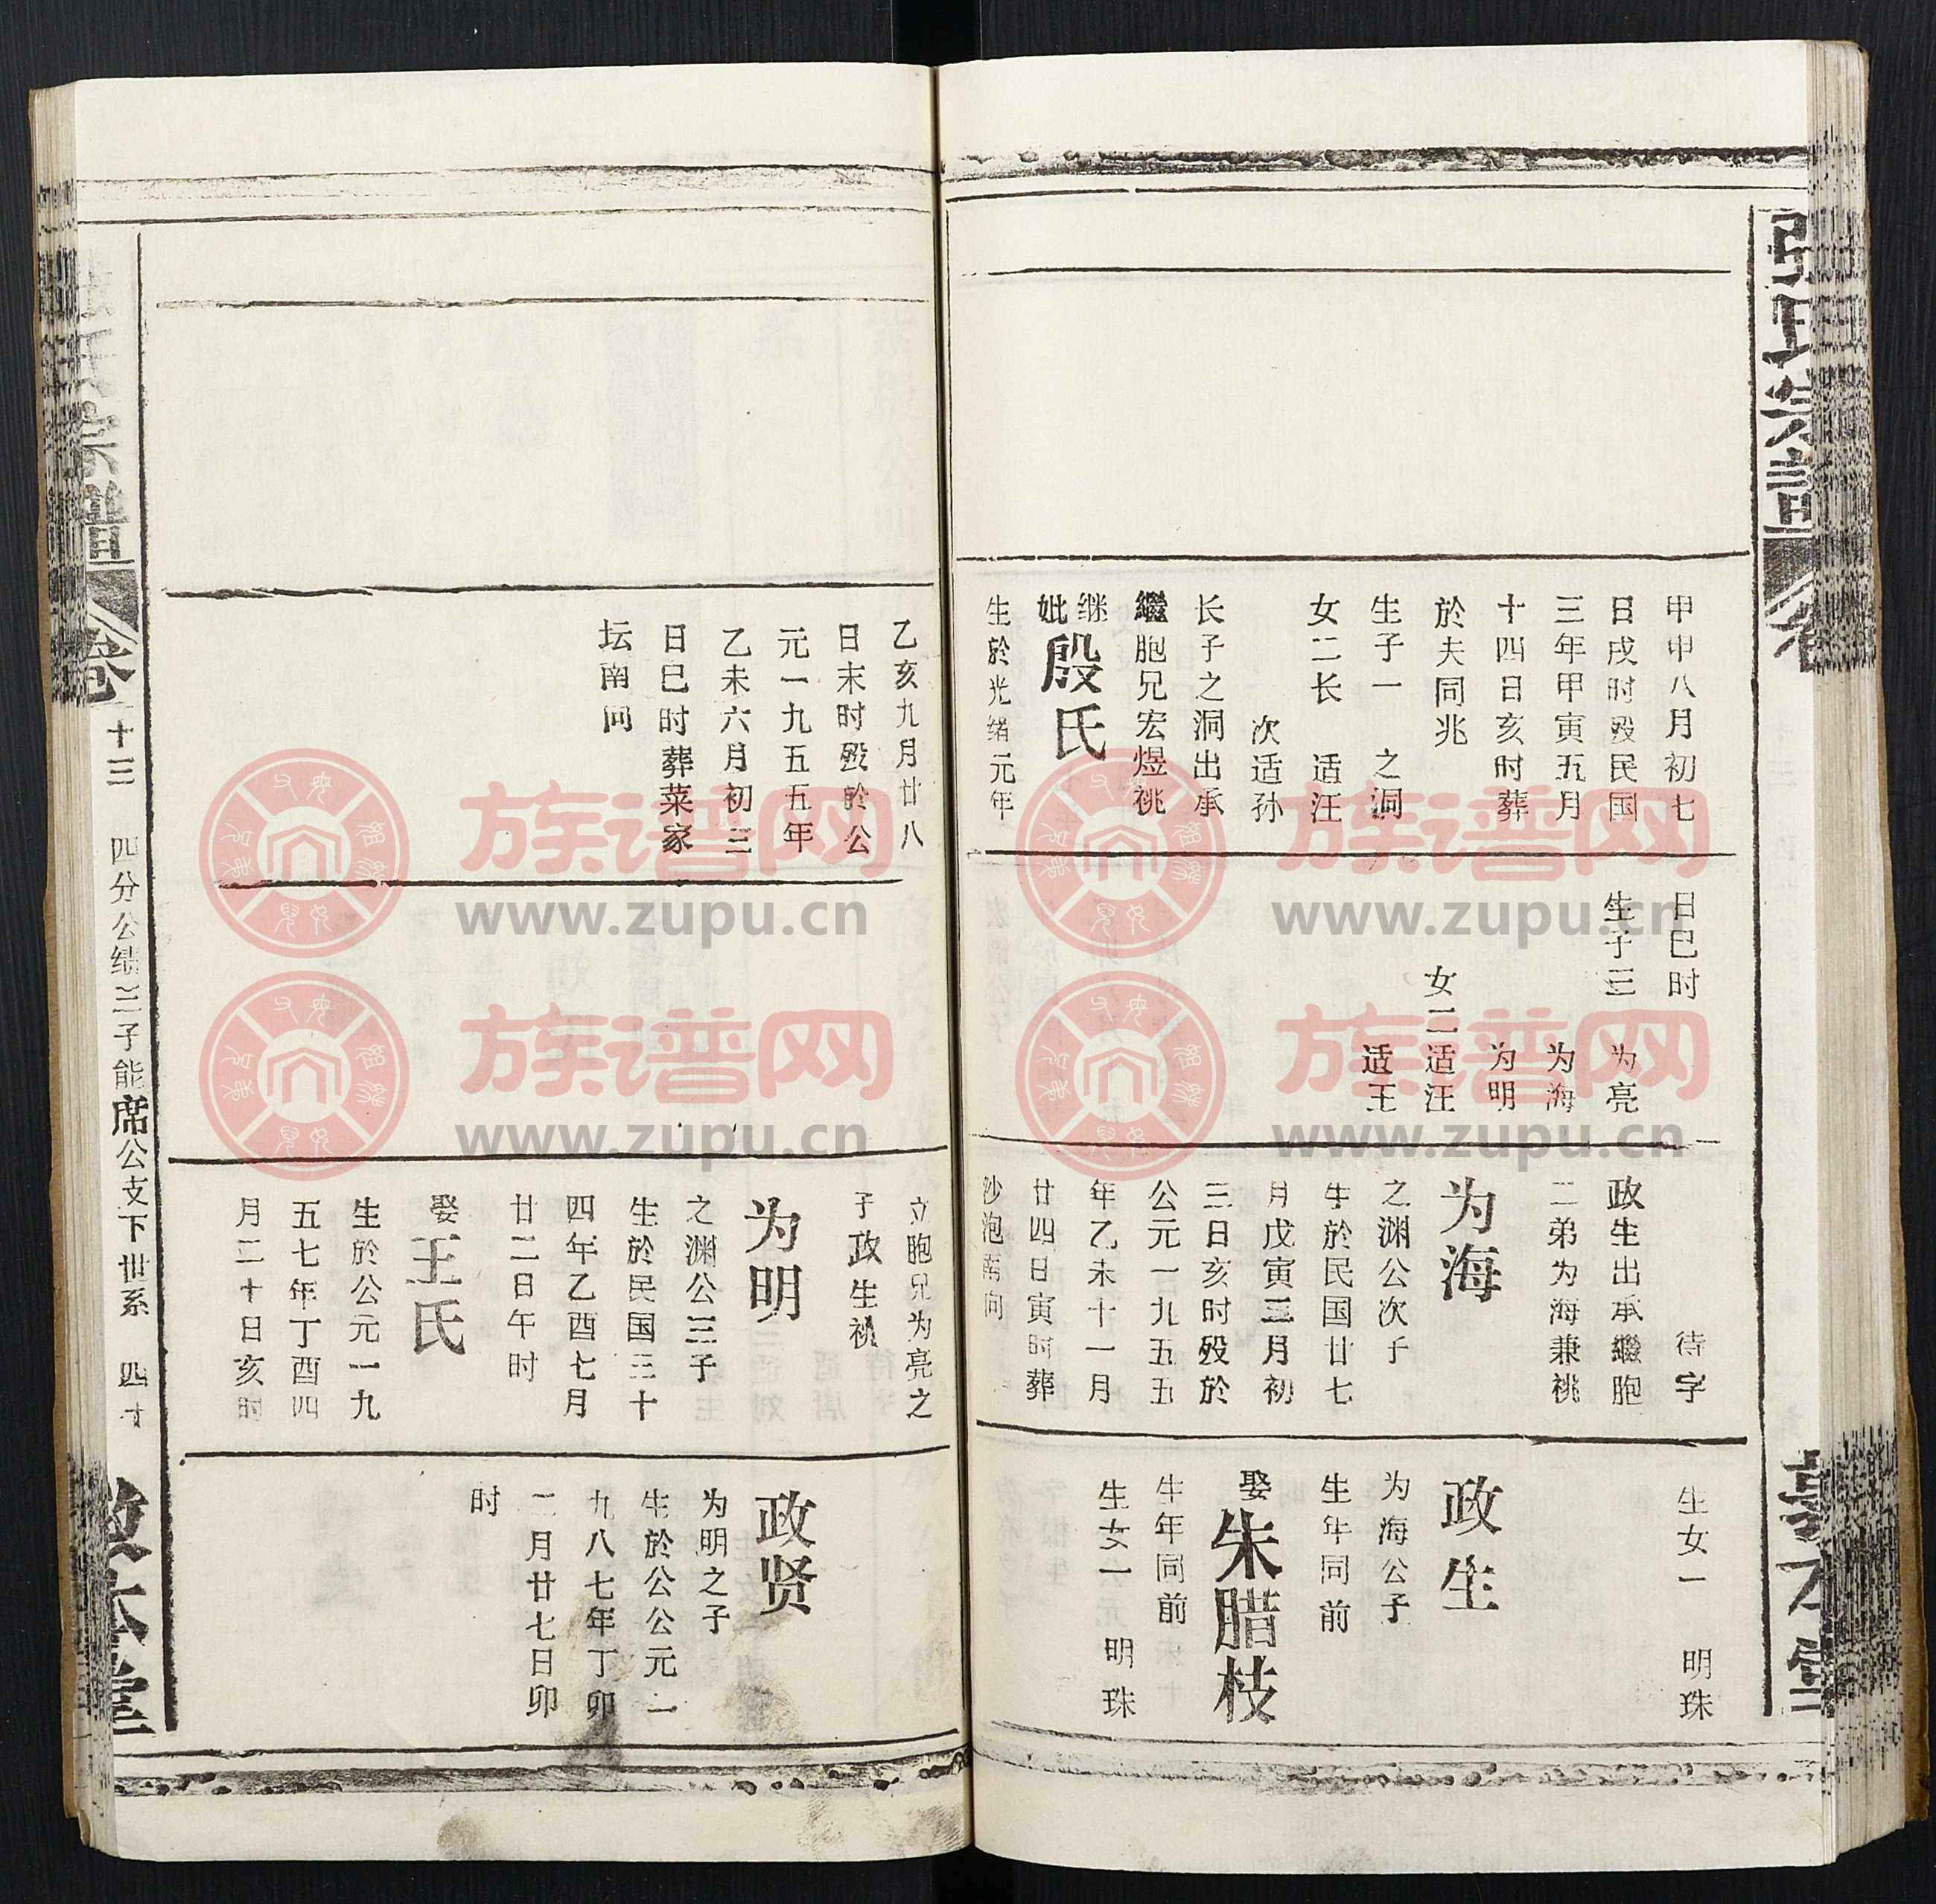 张氏宗譜
卷
敦本堂
甲申八月初七
日戌时殁民国
三年甲寅五月
十四日亥时葬
於夫同兆
生子一 之洞
女二长 适汪
次适孙
长子之洞出承
繼胞兄宏煜祧
继妣殷氏
生於光绪元年
日巳时
生子三 为亮
为海
为明
女二适汪
适王
待字
政生出承繼胞
二弟为海兼祧
为海
之渊公次子
生於民国廿七
月戊寅三月初
三日亥时殁於
公元一九五五
年乙未十一月
廿四日寅时葬
沙泡南向
生女一 明珠
政生
为海公子
生年同前
娶朱腊枝
生年同前
生女一 明珠
乙亥九月廿八
日末时殁於公
元一九五五年
乙未六月初三
日巳时葬菜家
坛南向
立胞兄为亮之
子政生祧
为明
之渊公三子
生於民国三十
四年乙酉七月
廿二日午时
娶王氏
生於公元一九
五七年丁酉四
月二十日亥时
政贤
为明之子
生於公公元一
九八七年丁卯
二月廿七日卯
时
张氏宗譜
卷十三 四分公绩三子能席公支下世系 四十
敦本堂
族谱网
www.zupu.cn
族谱网
www.zupu.cn
族谱网
www.zupu.cn
族谱网
www.zupu.cn